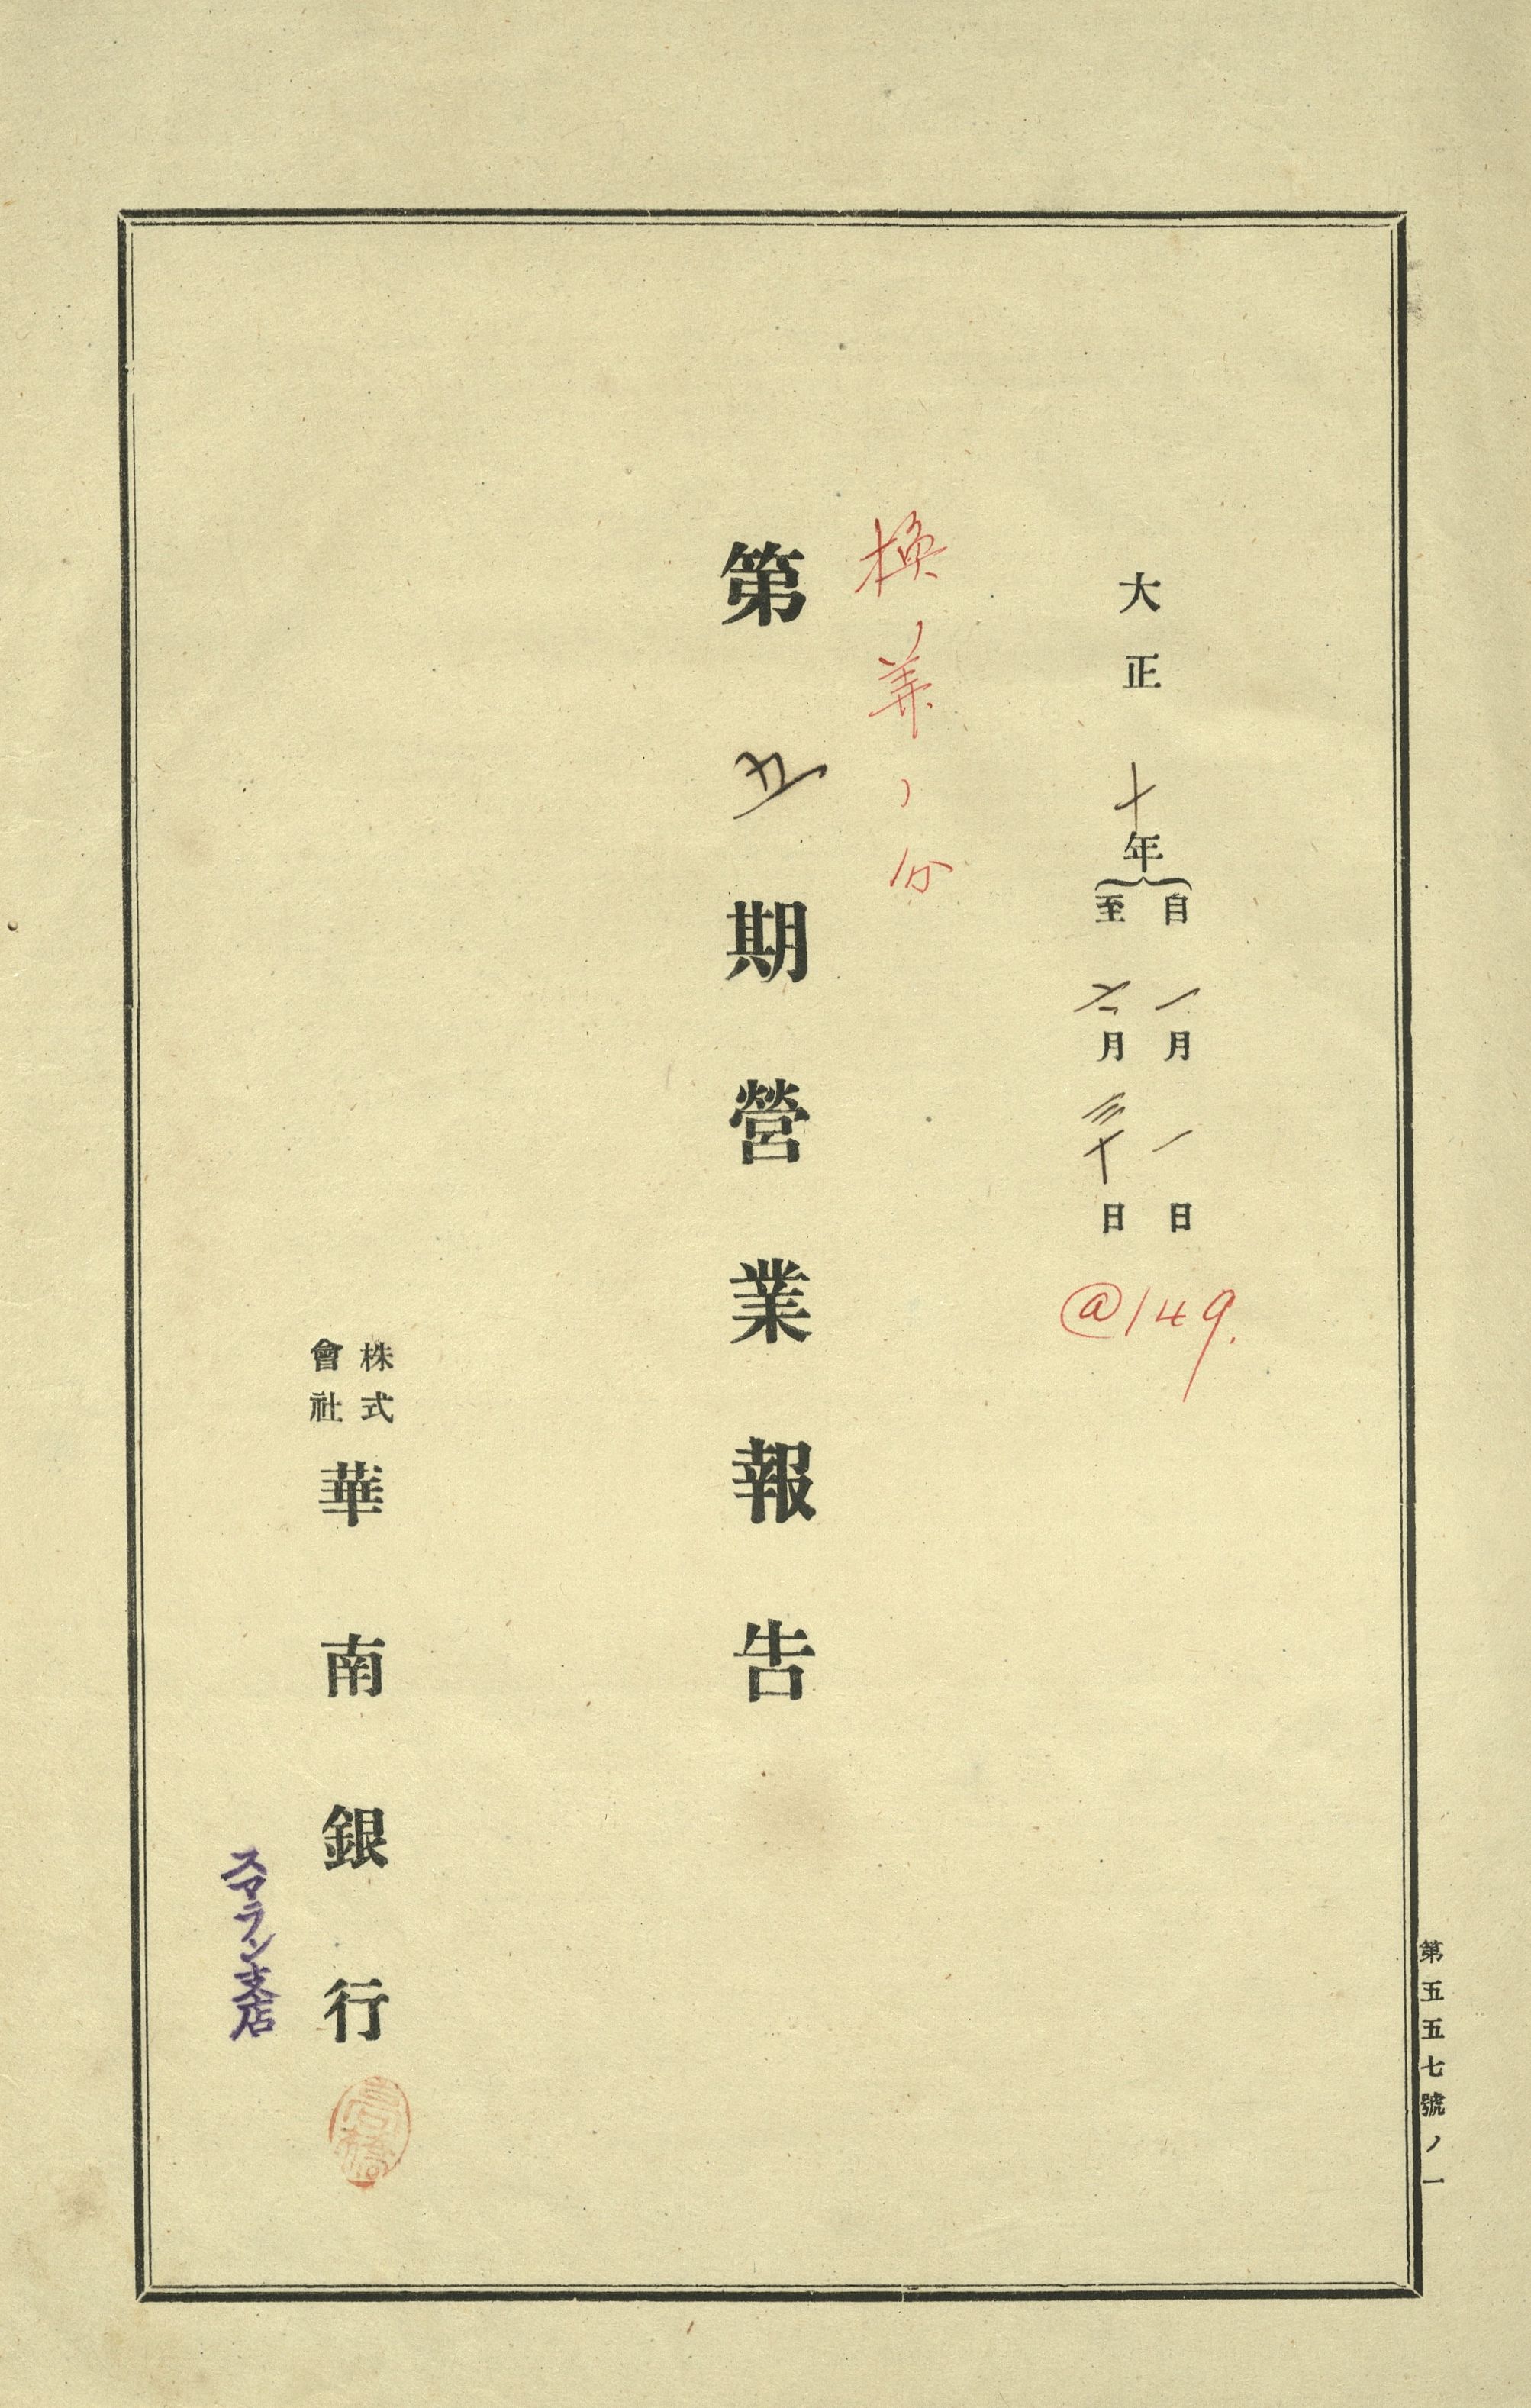 第五五七號ノ一
大正十年
自一月一日
至六月三十日
@149.
換算ノ分
第五期營業報告
株式會社華南銀行
スマラン支店
高橋